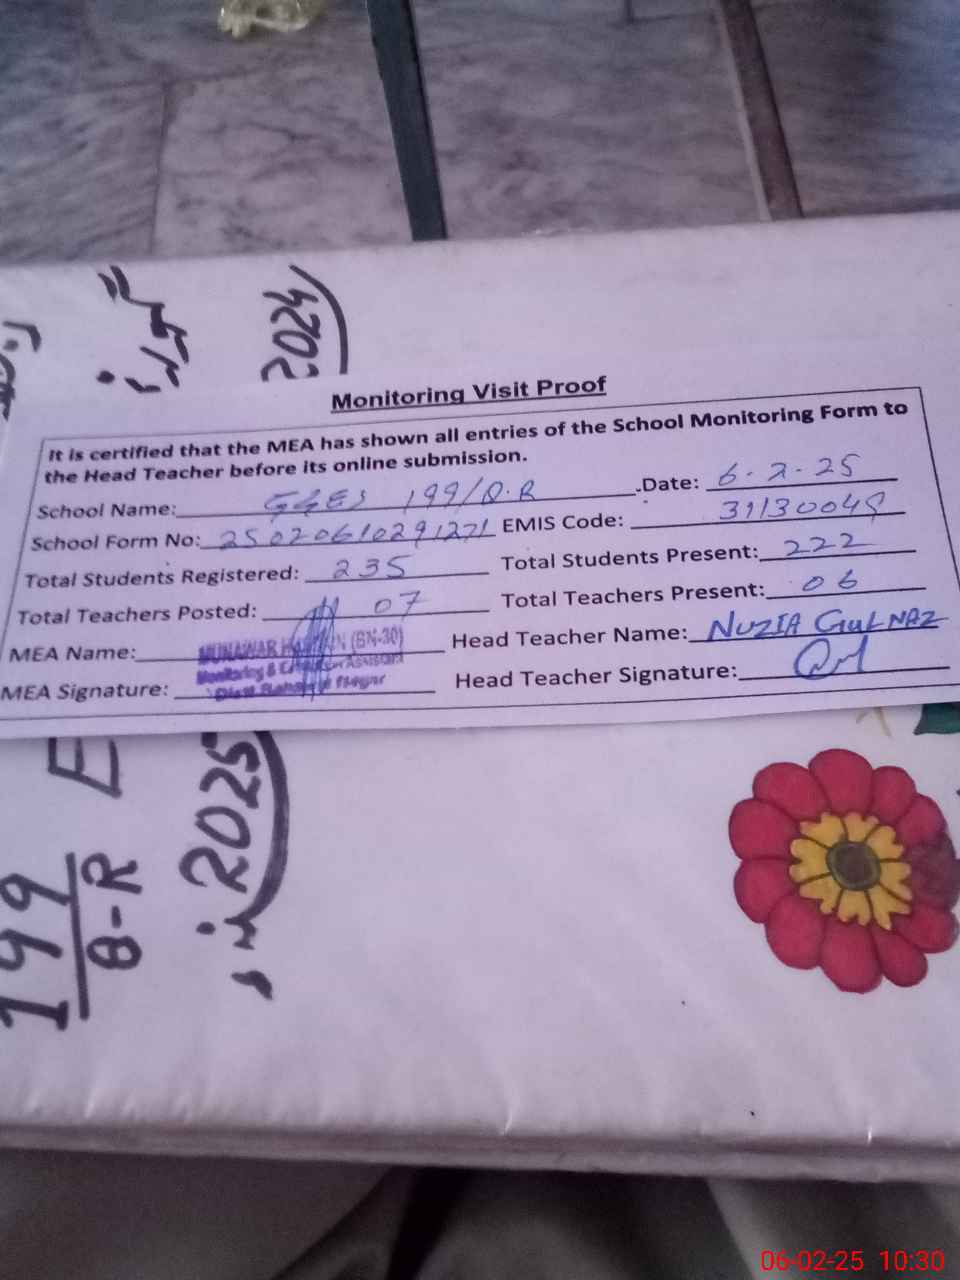 2024
Monitoring Visit Proof
It is certified that the MEA has shown all entries of the School Monitoring Form to
the Head Teacher before its online submission.
School Name: GGES 199/8.R Date: 6-2-25
School Form No: 25020610291271 EMIS Code: 31130048
Total Students Registered: 235 Total Students Present: 222
Total Teachers Posted: 07 Total Teachers Present: 06
MEA Name: MUNAWAR (BN-30) Head Teacher Name: NUZIA GULNAZ
Monitoring &
MEA Signature: Head Teacher Signature:
E
2025
199
8-R
06-02-25 10:30